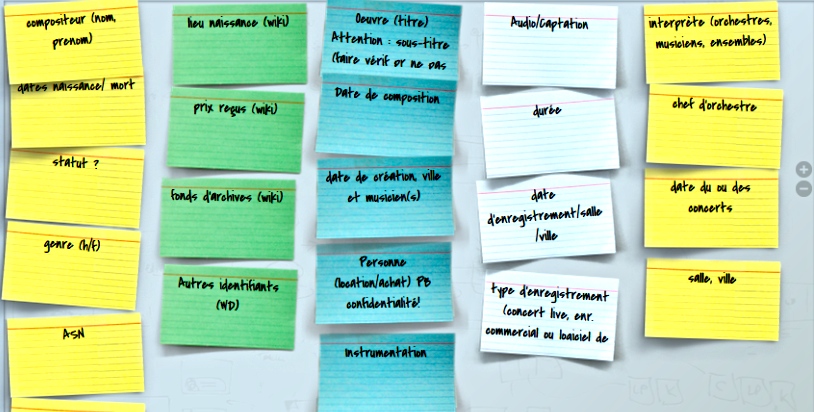 compositeur (nom,
prenom)
dates naissance/ mort
statut ?
genre (h/f)
ASN
lieu naissance (wiki)
prix reçus (wiki)
fonds d'archives (wiki)
Autres identifiants
(WD)
Oeuvre (titre)
Attention : sous-titre
(faire vérif or ne pas
Date de composition
date de création, ville
et musicien(s)
Personne
(location/achat) PB
confidentialité!
Instrumentation
Audio/Captation
durée
date
d'enregistrement/salle
/ville
type d'enregistrement
(concert live, enr.
commercial ou logiciel de
interprète (orchestres,
musiciens, ensembles)
chef d'orchestre
date du ou des
concerts
salle, ville